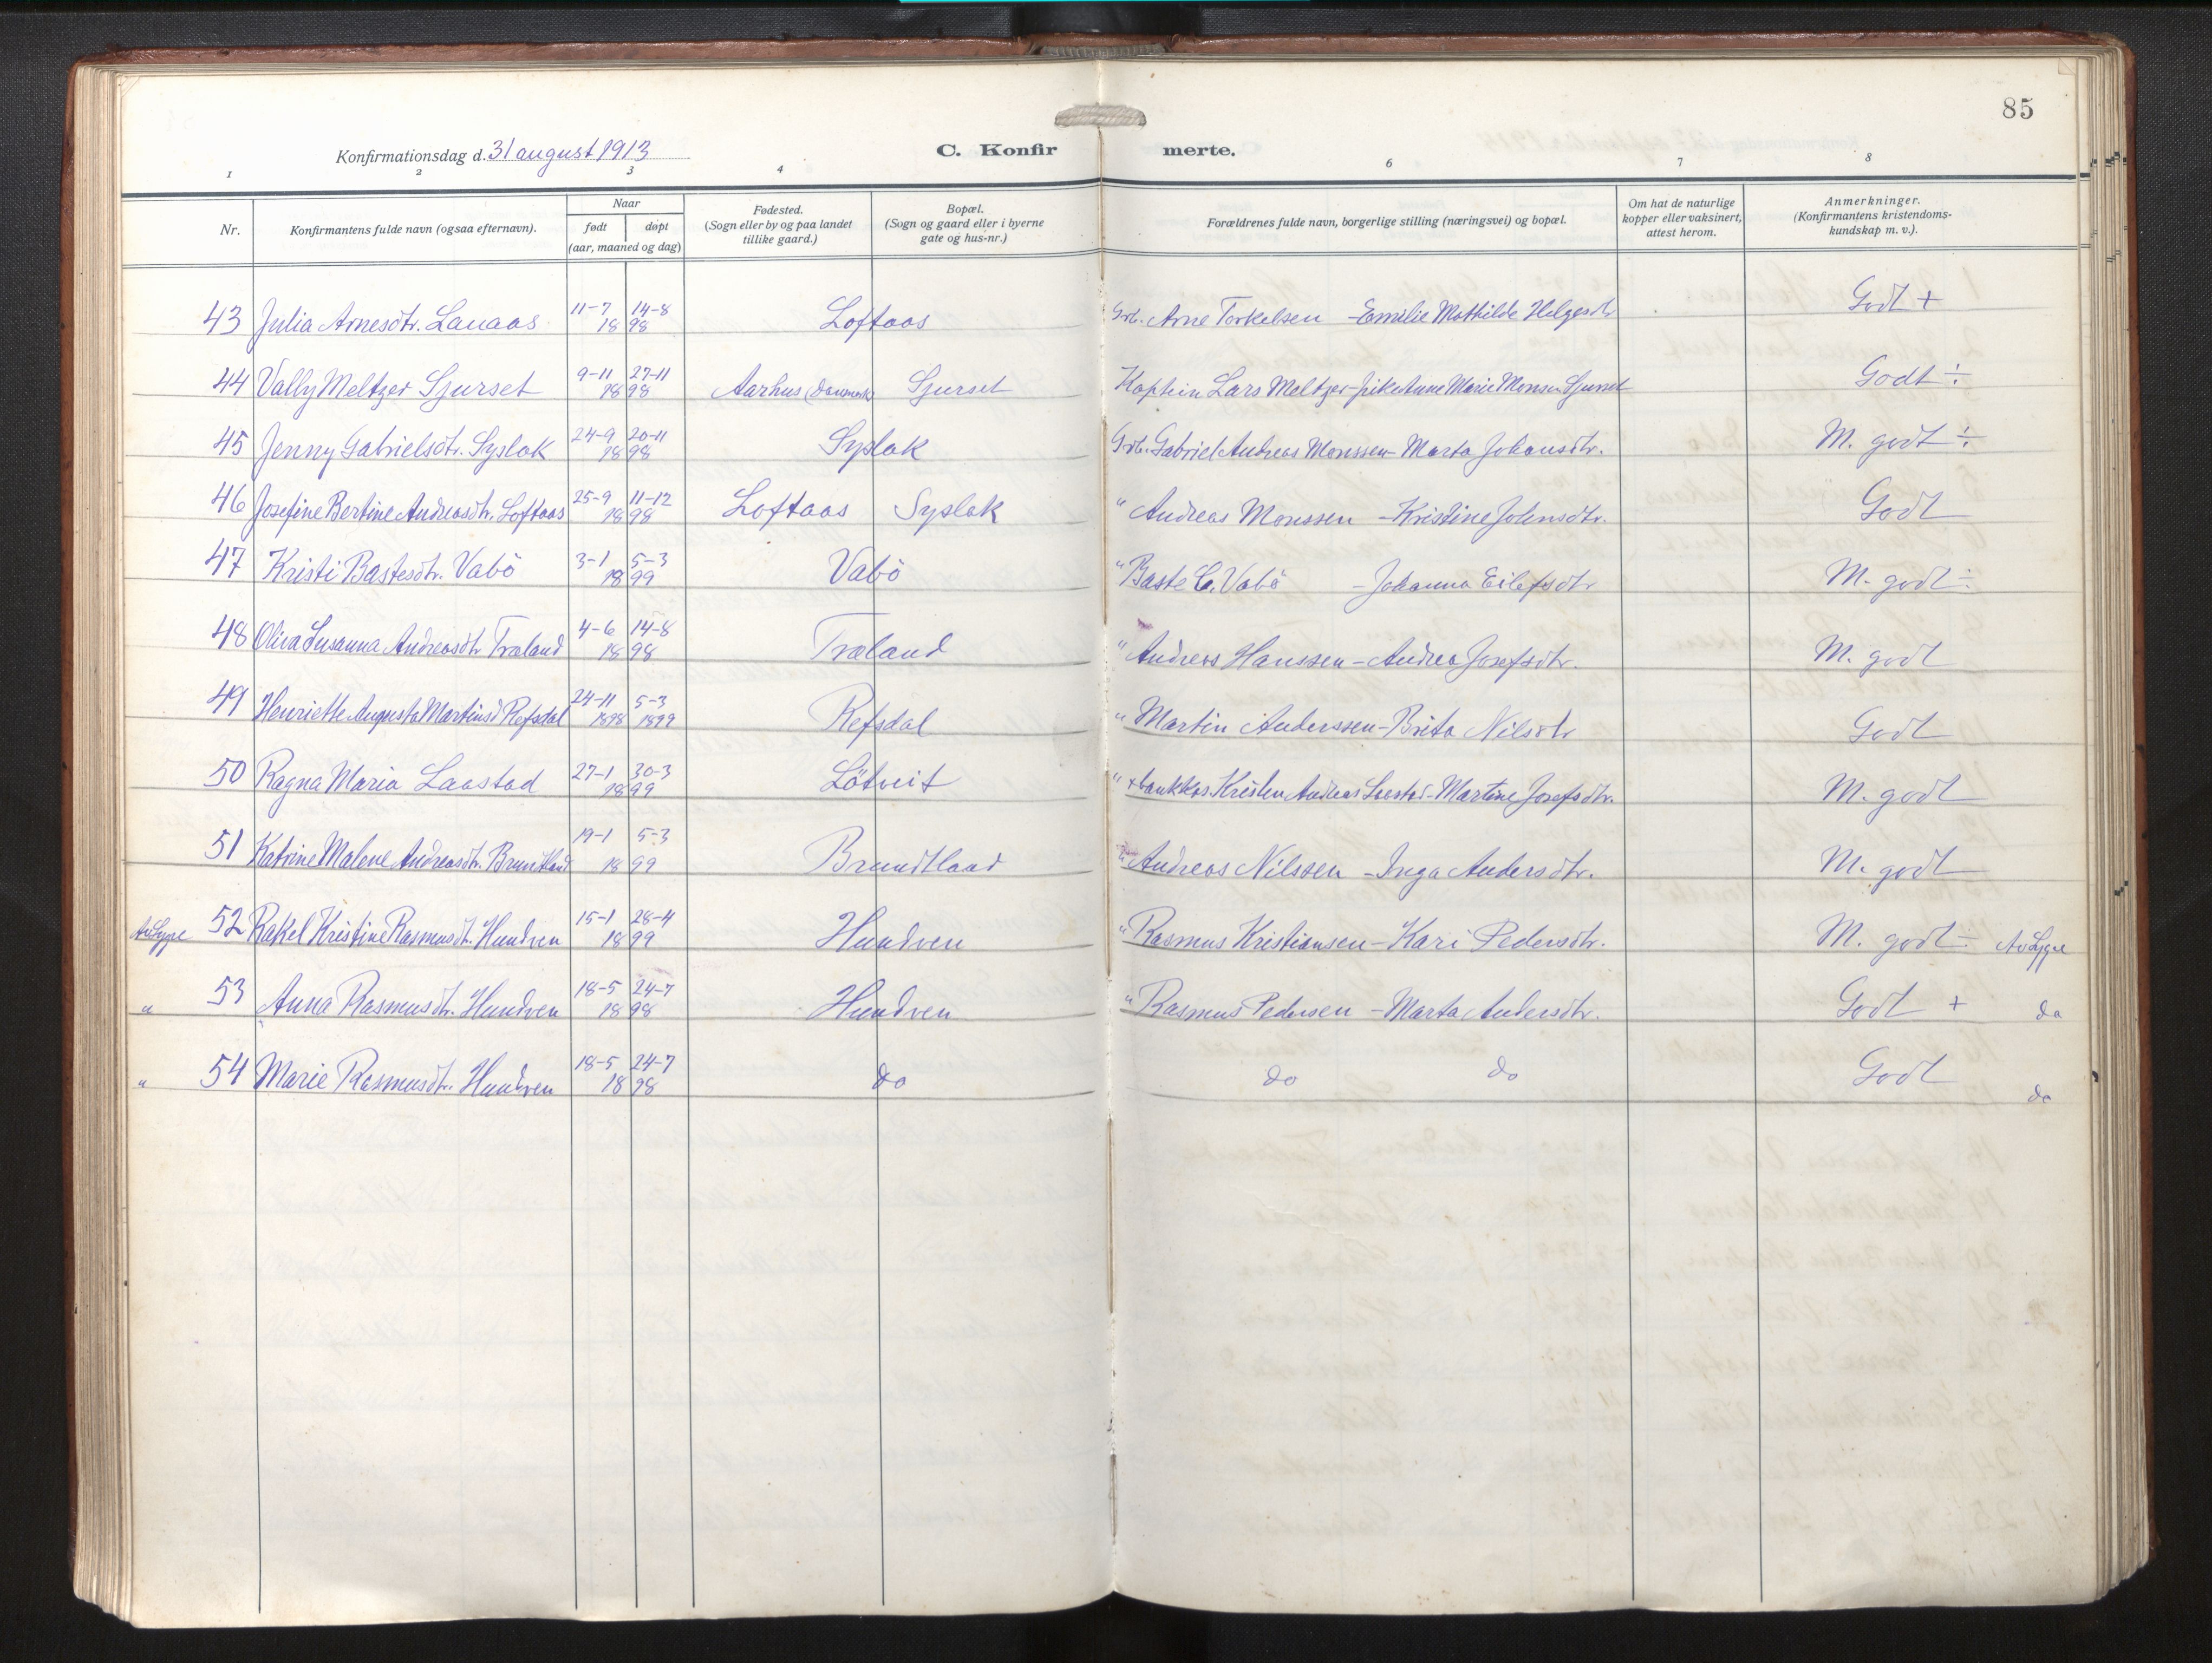 85
Konfirmationsdag d. 31 august 1913 C. Konfir merte.
1 2 3 4 6 7 8
Nr. Konfirmantens fulde navn (ogsaa efternavn). Naar født døpt (aar, maaned og dag) Fødested. (Sogn eller by og paa landet tillike gaard.) Bopæl. (Sogn og gaard eller i byerne gate og hus-nr.) Forældrenes fulde navn, borgerlige stilling (næringsvei) og bopæl. Om hat de naturlige kopper eller vaksinert, attest herom. Anmerkninger. (Konfirmantens kristendoms-kundskap m. v.).
43 Julia Arnesdtr. Lauaas 11-7 1898 14-8 Loftaas Grb. Arne Torkelsen - Emilie Mathilde Helgesdtr Godt +
44 Vally Meltzer Sjurset 9-11 1898 27-11 Aarhus (Danmark) Sjurset Kaptein Lars Meltzer - pike Anne Marie Monsen Sjurset Godt ÷
45 Jenny Gabrielsdtr. Syslak 24-9 1898 20-11 Syslak Grb. Gabriel Andreas Monssen - Marta Johansdtr. M. godt ÷
46 Josefine Bertine Andreasdtr. Loftaas 25-9 1898 11-12 Loftaas Syslak " Andreas Monssen - Kristine Johnsdtr. Godt
47 Kristi Bastesdtr. Vabö 3-1 1899 5-3 Vabö " Baste C. Vabö - Johanna Eilefsdtr M. godt ÷
48 Oliva Susanna Andreasdtr Træland 4-6 1898 14-8 Træland " Andreas Hanssen - Andrea Josefsdtr. M. godt
49 Henriette Augusta Martinsd Refsdal 24-11 1898 5-3 1899 Refsdal " Martin Anderssen - Brita Nilsdtr Godt
50 Ragna Maria Laastad 27-1 1899 30-3 Lötveit " + bankkas. Kristen Andreas Laastad - Martine Josefsdtr. M. godt
51 Katrine Malene Andreasdtr. Brundtland 19-1 1899 5-3 Brundtland " Andreas Nilssen - Inga Andersdtr. M. godt
Av Lygre 52 Rakel Kristine Rasmusdt. Hundven 15-1 1899 28-4 Hundven " Rasmus Kristiansen - Kari Pedersdtr. M. godt ÷ Av Lygre
" 53 Anna Rasmusdtr. Hundven 18-5 1898 24-7 Hundven " Rasmus Pedersen - Marta Andersdtr. Godt + do
" 54 Marie Rasmusdtr. Hundven 18-5 1898 24-7 do do do Godt do